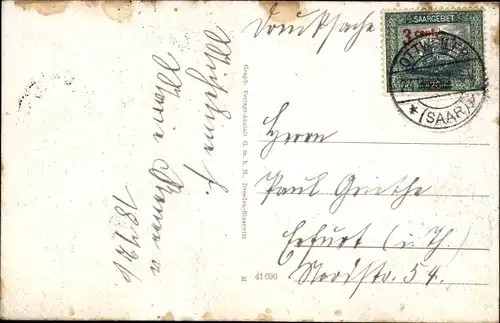 Drucksache
SAARGEBIET
3 cent.
(SAAR)
Herrn
Paul Goethe
Erfurt (i. Th.)
Nordstr. 54.
Graph. Verlags-Anstalt G. m. b. H., Dresden-Blasewitz
M 41696
Maria